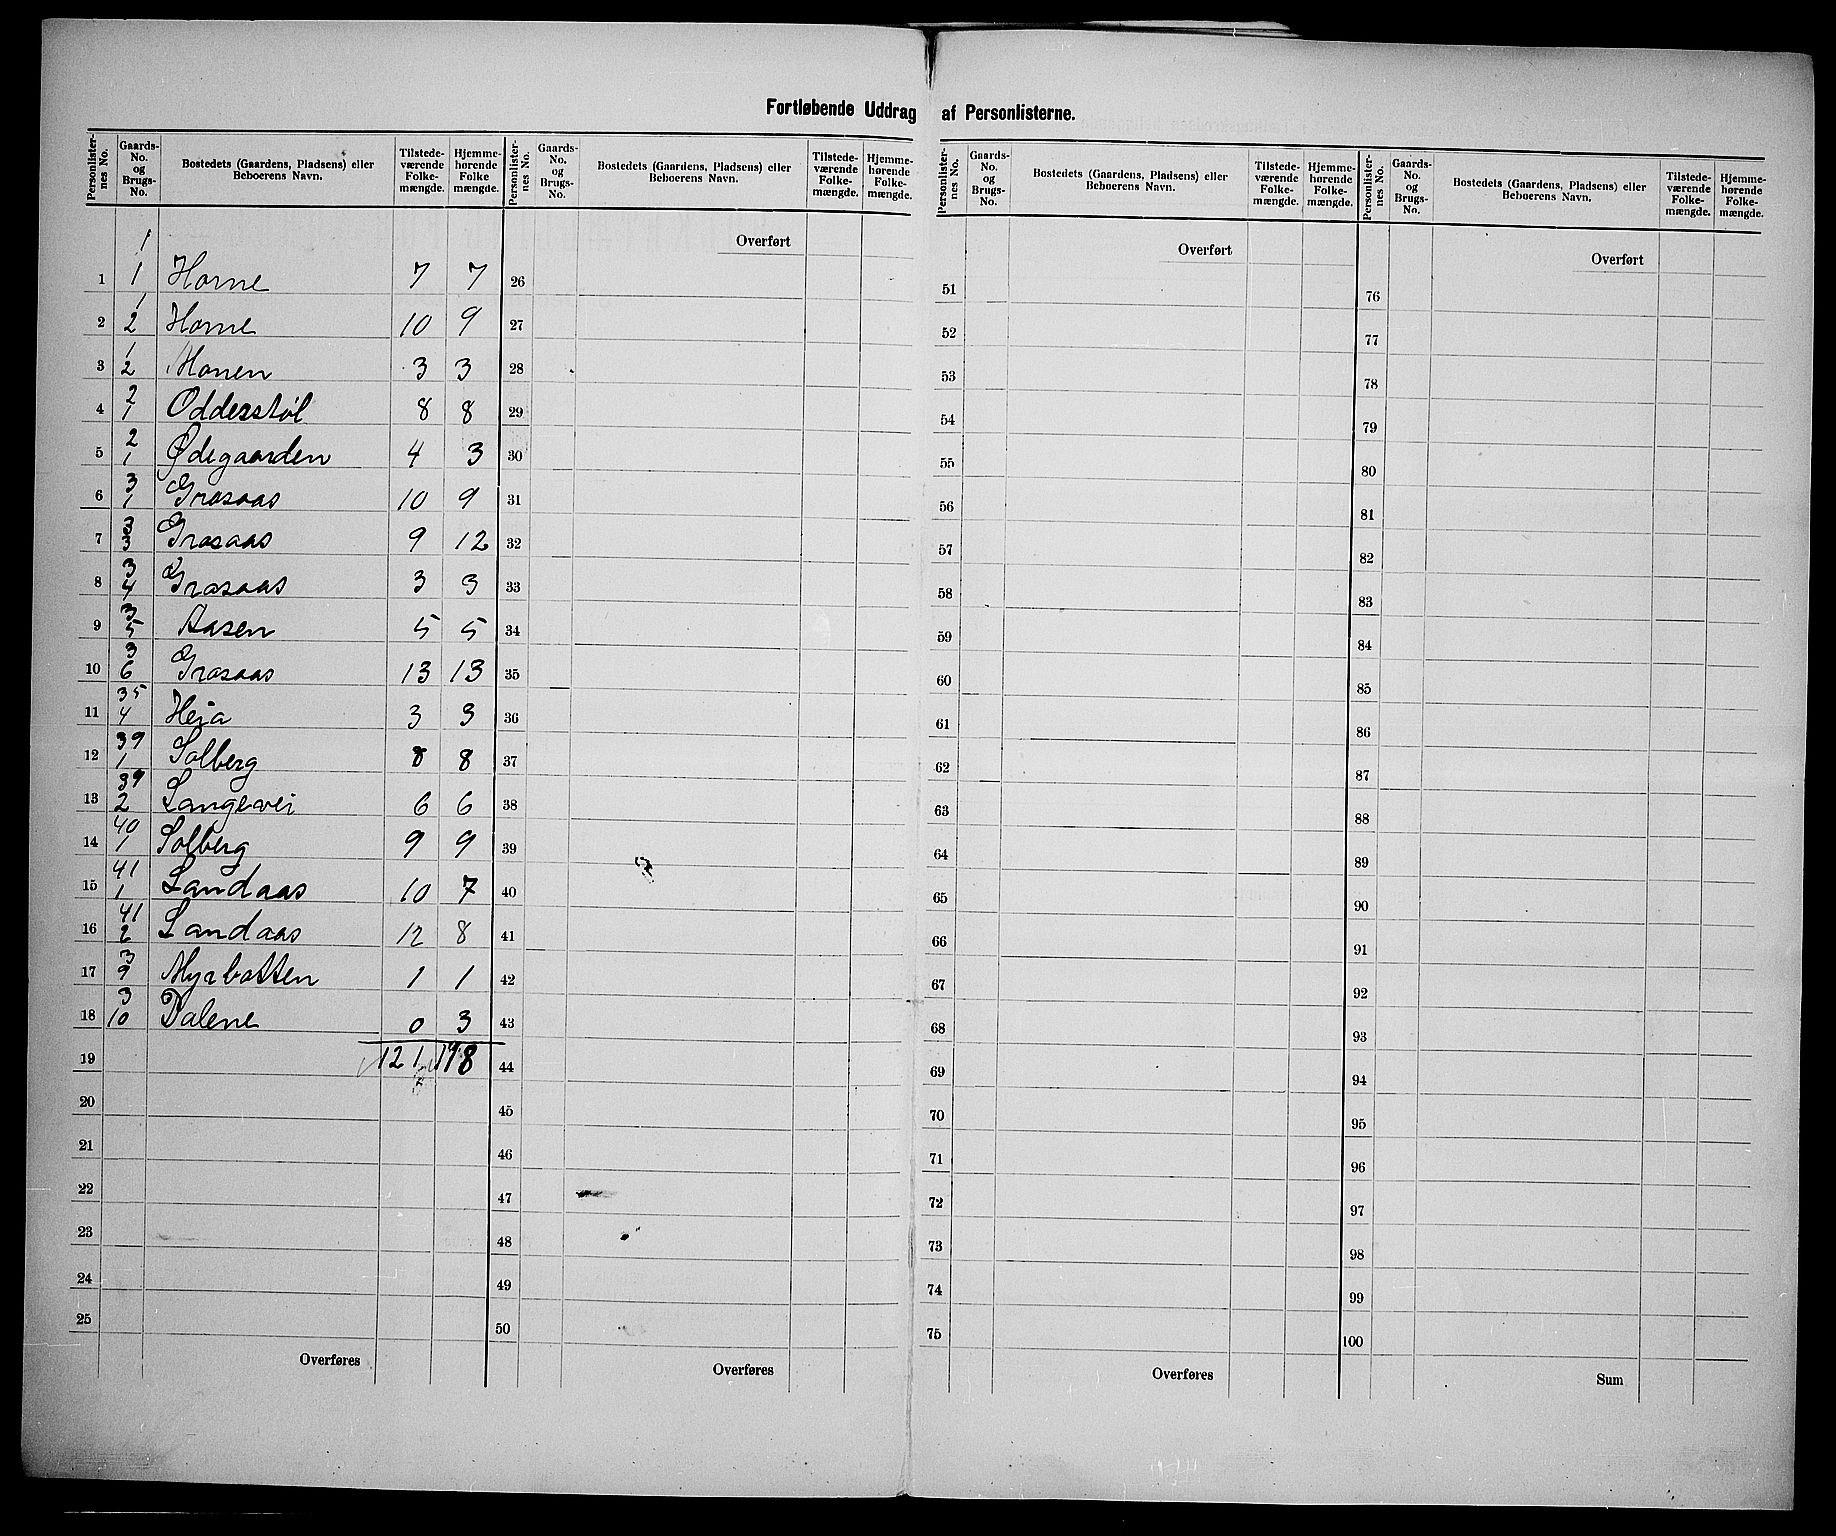 Fortløbende Uddrag af Personlisterne.
Personlisternes No. | Gaards-No. og Brugs-No. | Bostedets (Gaardens, Pladsens) eller Beboerens Navn. | Tilstedeværende Folkemængde. | Hjemmehørende Folkemængde.
Personlisternes No. | Gaards-No. og Brugs-No. | Bostedets (Gaardens, Pladsens) eller Beboerens Navn. | Tilstedeværende Folkemængde. | Hjemmehørende Folkemængde.
Personlisternes No. | Gaards-No. og Brugs-No. | Bostedets (Gaardens, Pladsens) eller Beboerens Navn. | Tilstedeværende Folkemængde. | Hjemmehørende Folkemængde.
Personlisternes No. | Gaards-No. og Brugs-No. | Bostedets (Gaardens, Pladsens) eller Beboerens Navn. | Tilstedeværende Folkemængde. | Hjemmehørende Folkemængde.
1 1/1 Horne 7 7
2 1/2 Horne 10 9
3 1/2 Monen 3 3
4 2/1 Odderstøl 8 8
5 2/1 Ødegaarden 4 3
6 3/1 Grosaas 10 9
7 3/3 Grosaas 9 12
8 3/4 Grosaas 3 3
9 3/5 Aasen 5 5
10 3/6 Grosaas 13 13
11 35/4 Heia 3 3
12 39/1 Solberg 8 8
13 39/2 Langevei 6 6
14 40/1 Solberg 9 9
15 41/1 Landaas 10 7
16 41/2 Landaas 12 8
17 3/9 Myrbotten 1 1
18 3/10 Dalene 0 3
19 121
20
21
22
23
24
25
Overføres
Overført
26
27
28
29
30
31
32
33
34
35
36
37
38
39
40
41
42
43
44
45
46
47
48
49
50
Overføres
Overført
51
52
53
54
55
56
57
58
59
60
61
62
63
64
65
66
67
68
69
70
71
72
73
74
75
Overføres
Overført
76
77
78
79
80
81
82
83
84
85
86
87
88
89
90
91
92
93
94
95
96
97
98
99
100
Sum